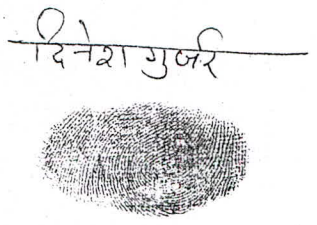 दिनेश गुर्जर